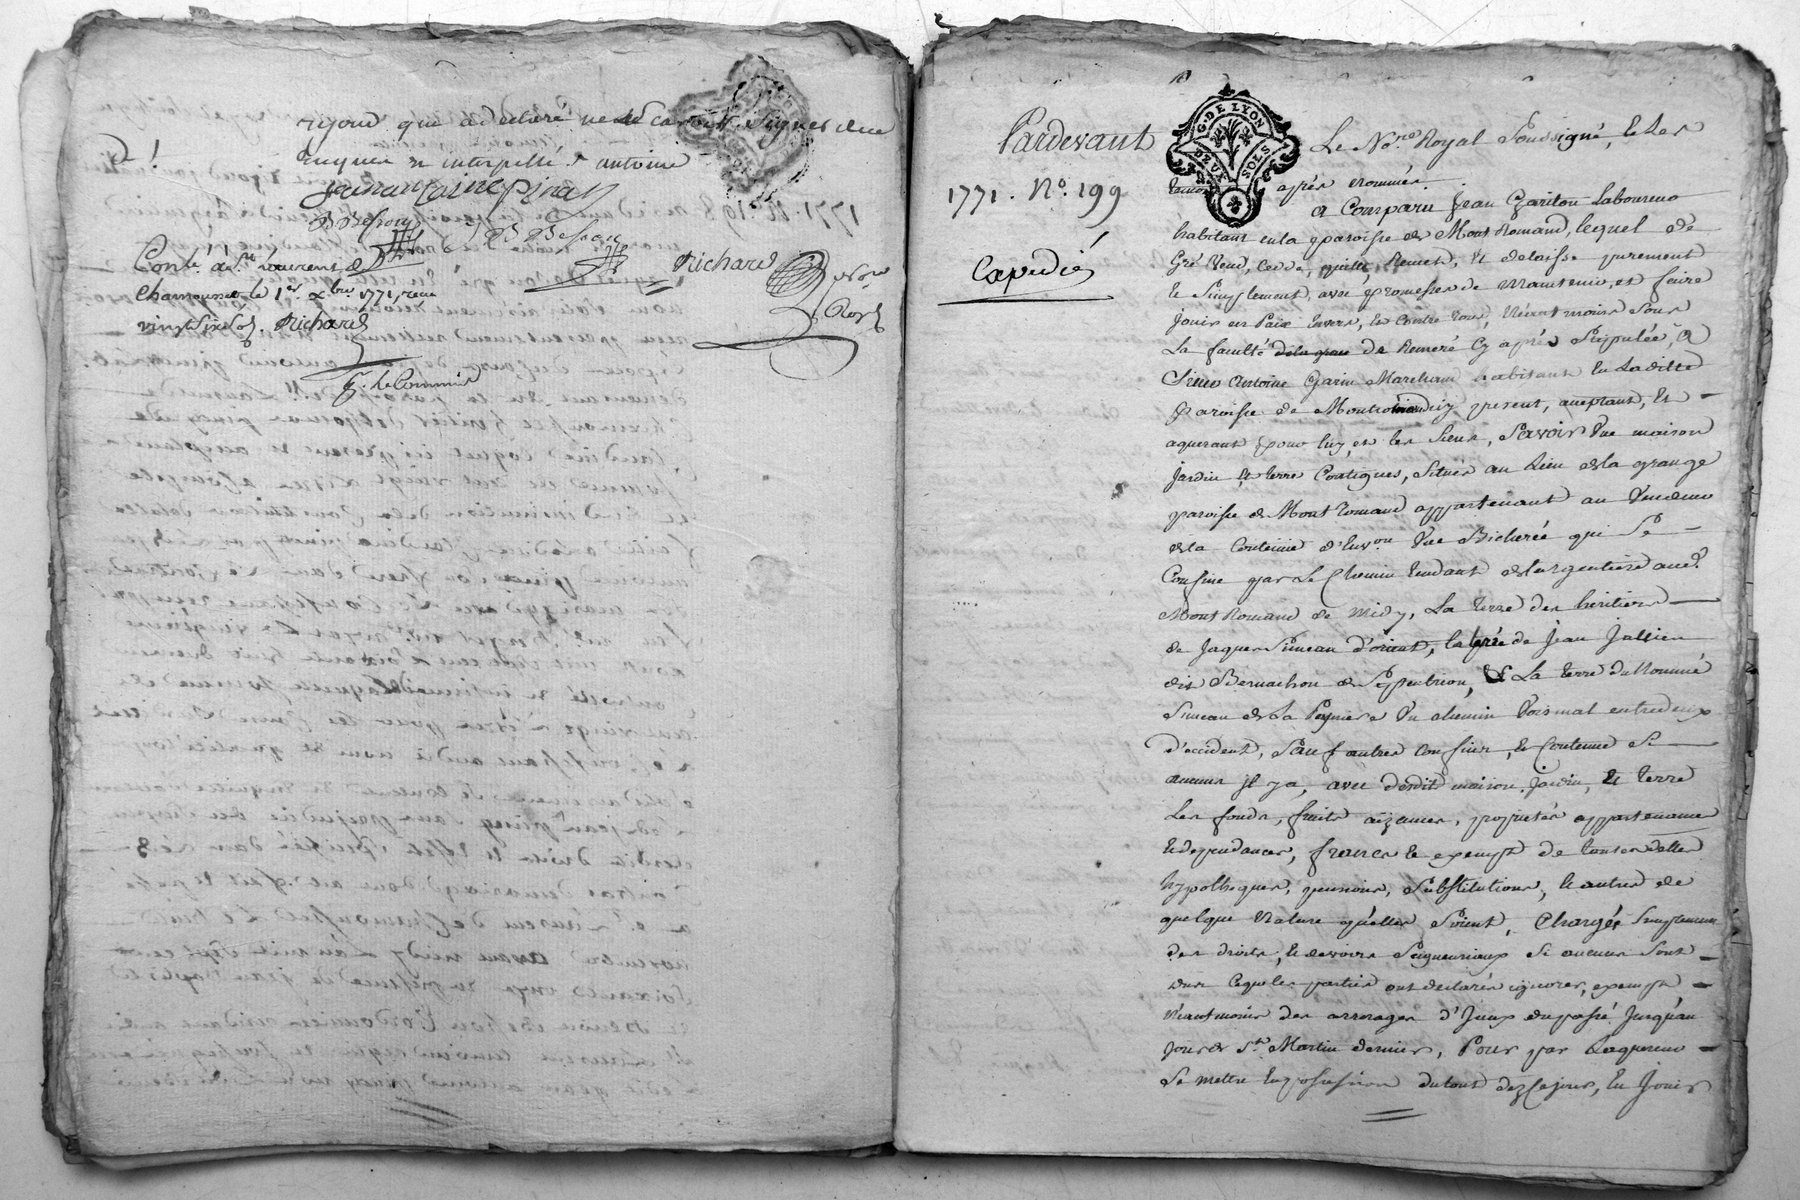 rijoud qui a declaré ne le savoir signer de ce
requis et interpellé. antoine
jean antoine pinay
B Besson
B Besson
Richard
Nore
Royal
Conté. à St. Laurent de
Chamousset le 1er. xbre. 1771, reçu
vingt six sols. Richard
Pardevant
1771. No. 199
Expedié
G. DE LYON
DEUX SOLS
Le Nore. Royal Soussigné, et les
temoins après nommés.
a Comparu Jean Laboureur
habitant en la paroisse de Mont Romand, lequel de
Gré Vend, Cedde, quitte, Remet, et delaisse purement
et Simplement, avec promesses de maintenir, et faire
jouir en Paix Envers, et Contre tous, Néantmoins Sous
La faculté de Remeré Cy après Stipulée, A
Sieur Antoine Marchand habitant En Laditte
paroisse de Montromand icy present, acceptant, Et
aquerant pour luy, et les Siens, Savoir Une maison
jardin Et terre Contigues, Situés au Lieu de la grange
paroisse de Mont Romand appartenant au Vendeur
de la Contenüe d'Environ Une Bicherée qui Se
Confine par Le Chemin tendant de Largentiere aud.
Mont Romand de midy, La terre des heritiers
de Jaques Simean d'orient, la terre de Jean Jullien
dit Bernachon de Septentrion, & La terre du Nommé
Simean de La Un chemin Voisinal entredeux
d'occident, Sauf autres Confins, et Contenüe Si
aucuns Il y a, avec desdits maison, Jardin, Et terre
Les fonds, fruits aizances, proprietés appartenances
et dependances, francs et exempts de toutes dettes
hypotheques, pensions, Substitutions, et autres de
quelque Nature qu'elles Soient, Chargés Simplement
des droits, et devoirs Seigneuriaux Si aucuns Sont
dus Ce que les parties ont declarés ignorer, exempts
Néantmoins des arrerages d'Iceux du passé Jusqu'au
jour de St. Martin dernier, Pour par Laquereur
Se mettre En possession du tout dez Ce jour, En Jouir